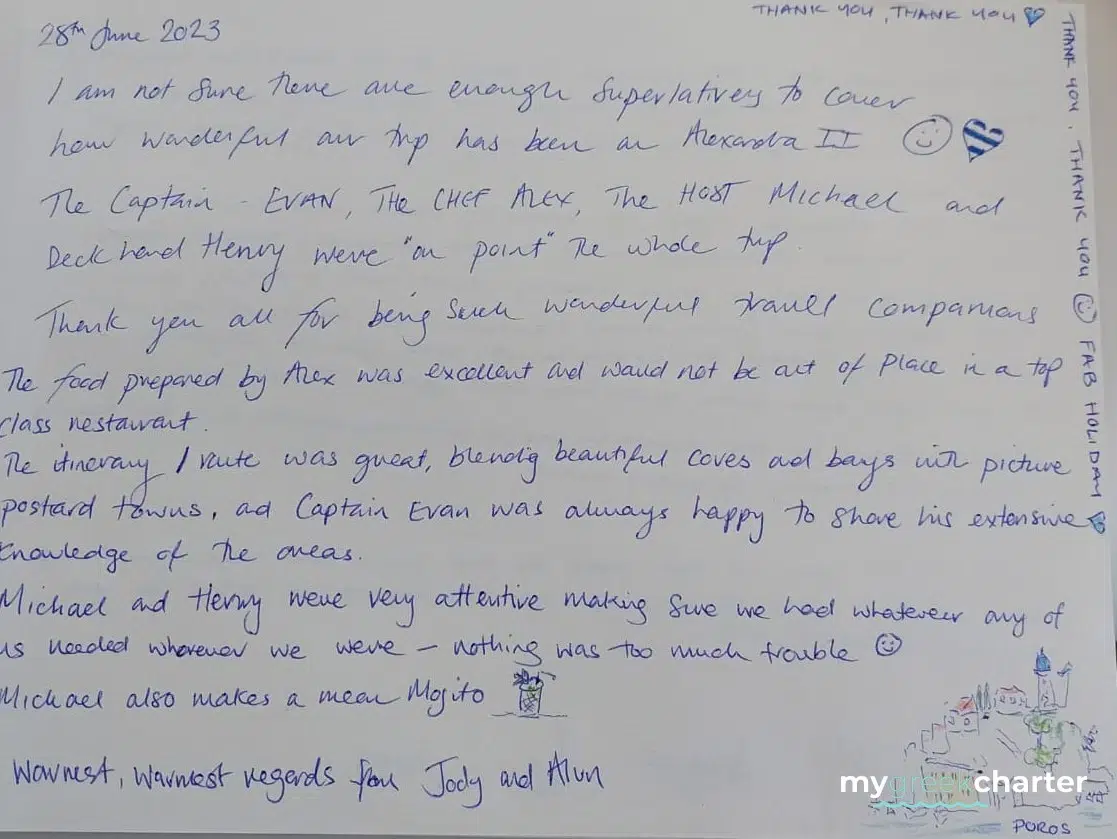 28th June 2023
THANK YOU, THANK YOU
I am not sure there are enough superlatives to cover
how wonderful our trip has been on Alexandra II
The Captain - EVAN, THE CHEF ALEX, The HOST Michael and
Deck hand Henry were "on point" the whole trip.
Thank you all for being such wonderful travel companions
The food prepared by Alex was excellent and would not be out of place in a top
class restaurant.
The itinerary / route was great, blending beautiful coves and bays with picture
postcard towns, and Captain Evan was always happy to share his extensive
knowledge of the areas.
Michael and Henry were very attentive making sure we had whatever any of
us needed wherever we were – nothing was too much trouble
Michael also makes a mean Mojito
Warmest, warmest regards from Jody and Alun
THANK YOU. THANK YOU FAB HOLIDAY
mygreekcharter
POROS